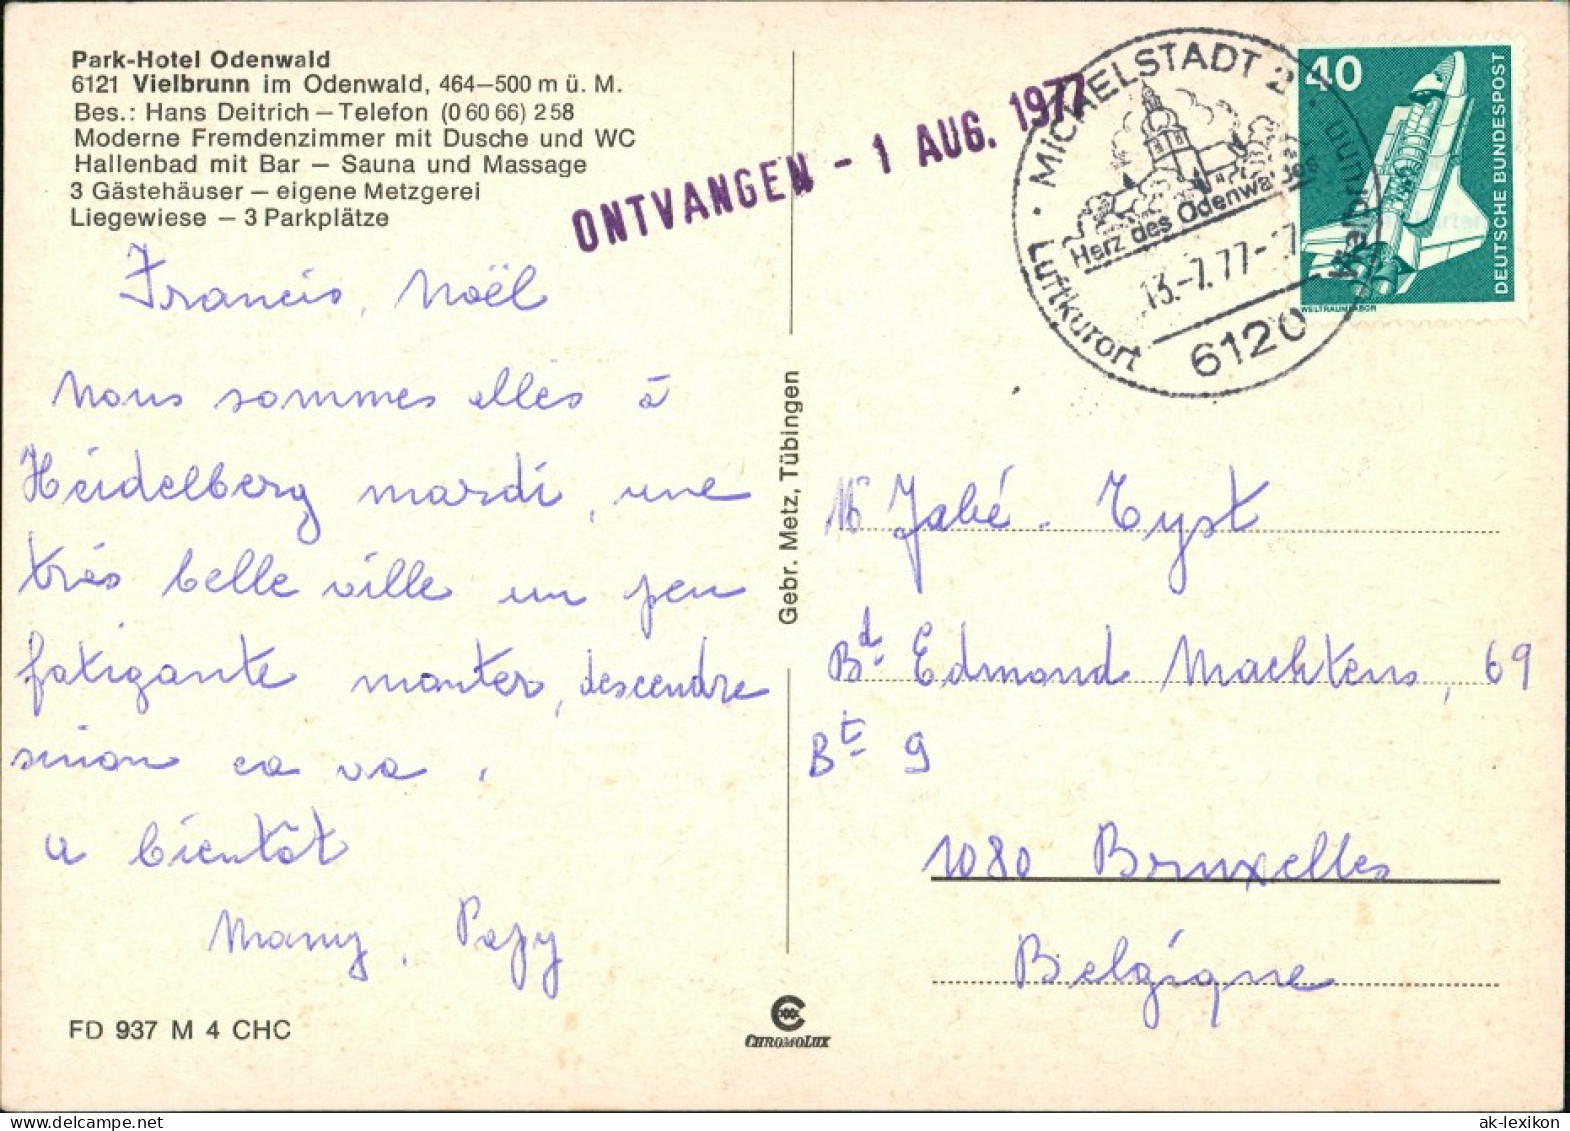 Park-Hotel Odenwald
6121 Vielbrunn im Odenwald, 464–500 m ü. M.
Bes.: Hans Deitrich – Telefon (0 60 66) 2 58
Moderne Fremdenzimmer mit Dusche und WC
Hallenbad mit Bar – Sauna und Massage
3 Gästehäuser – eigene Metzgerei
Liegewiese – 3 Parkplätze
ONTVANGEN - 1 AUG. 1977
MICHELSTADT 2
Herz des Odenwaldes
13.-7.77-17
Luftkurort
6120
40
DEUTSCHE BUNDESPOST
WELTRAUMLABOR
Francis, Noël
Nous sommes allés à
Heidelberg mardi, une
très belle ville un peu
fatigante monter, descendre
sinon ca va.
a bientôt
Mamy, Papy
FD 937 M 4 CHC
Gebr. Metz, Tübingen
CHROMOLUX
Jabé. Tyst
Bd Edmond Machtens, 69
Bt 9
1080 Bruxelles
Belgique
ak-lexikon